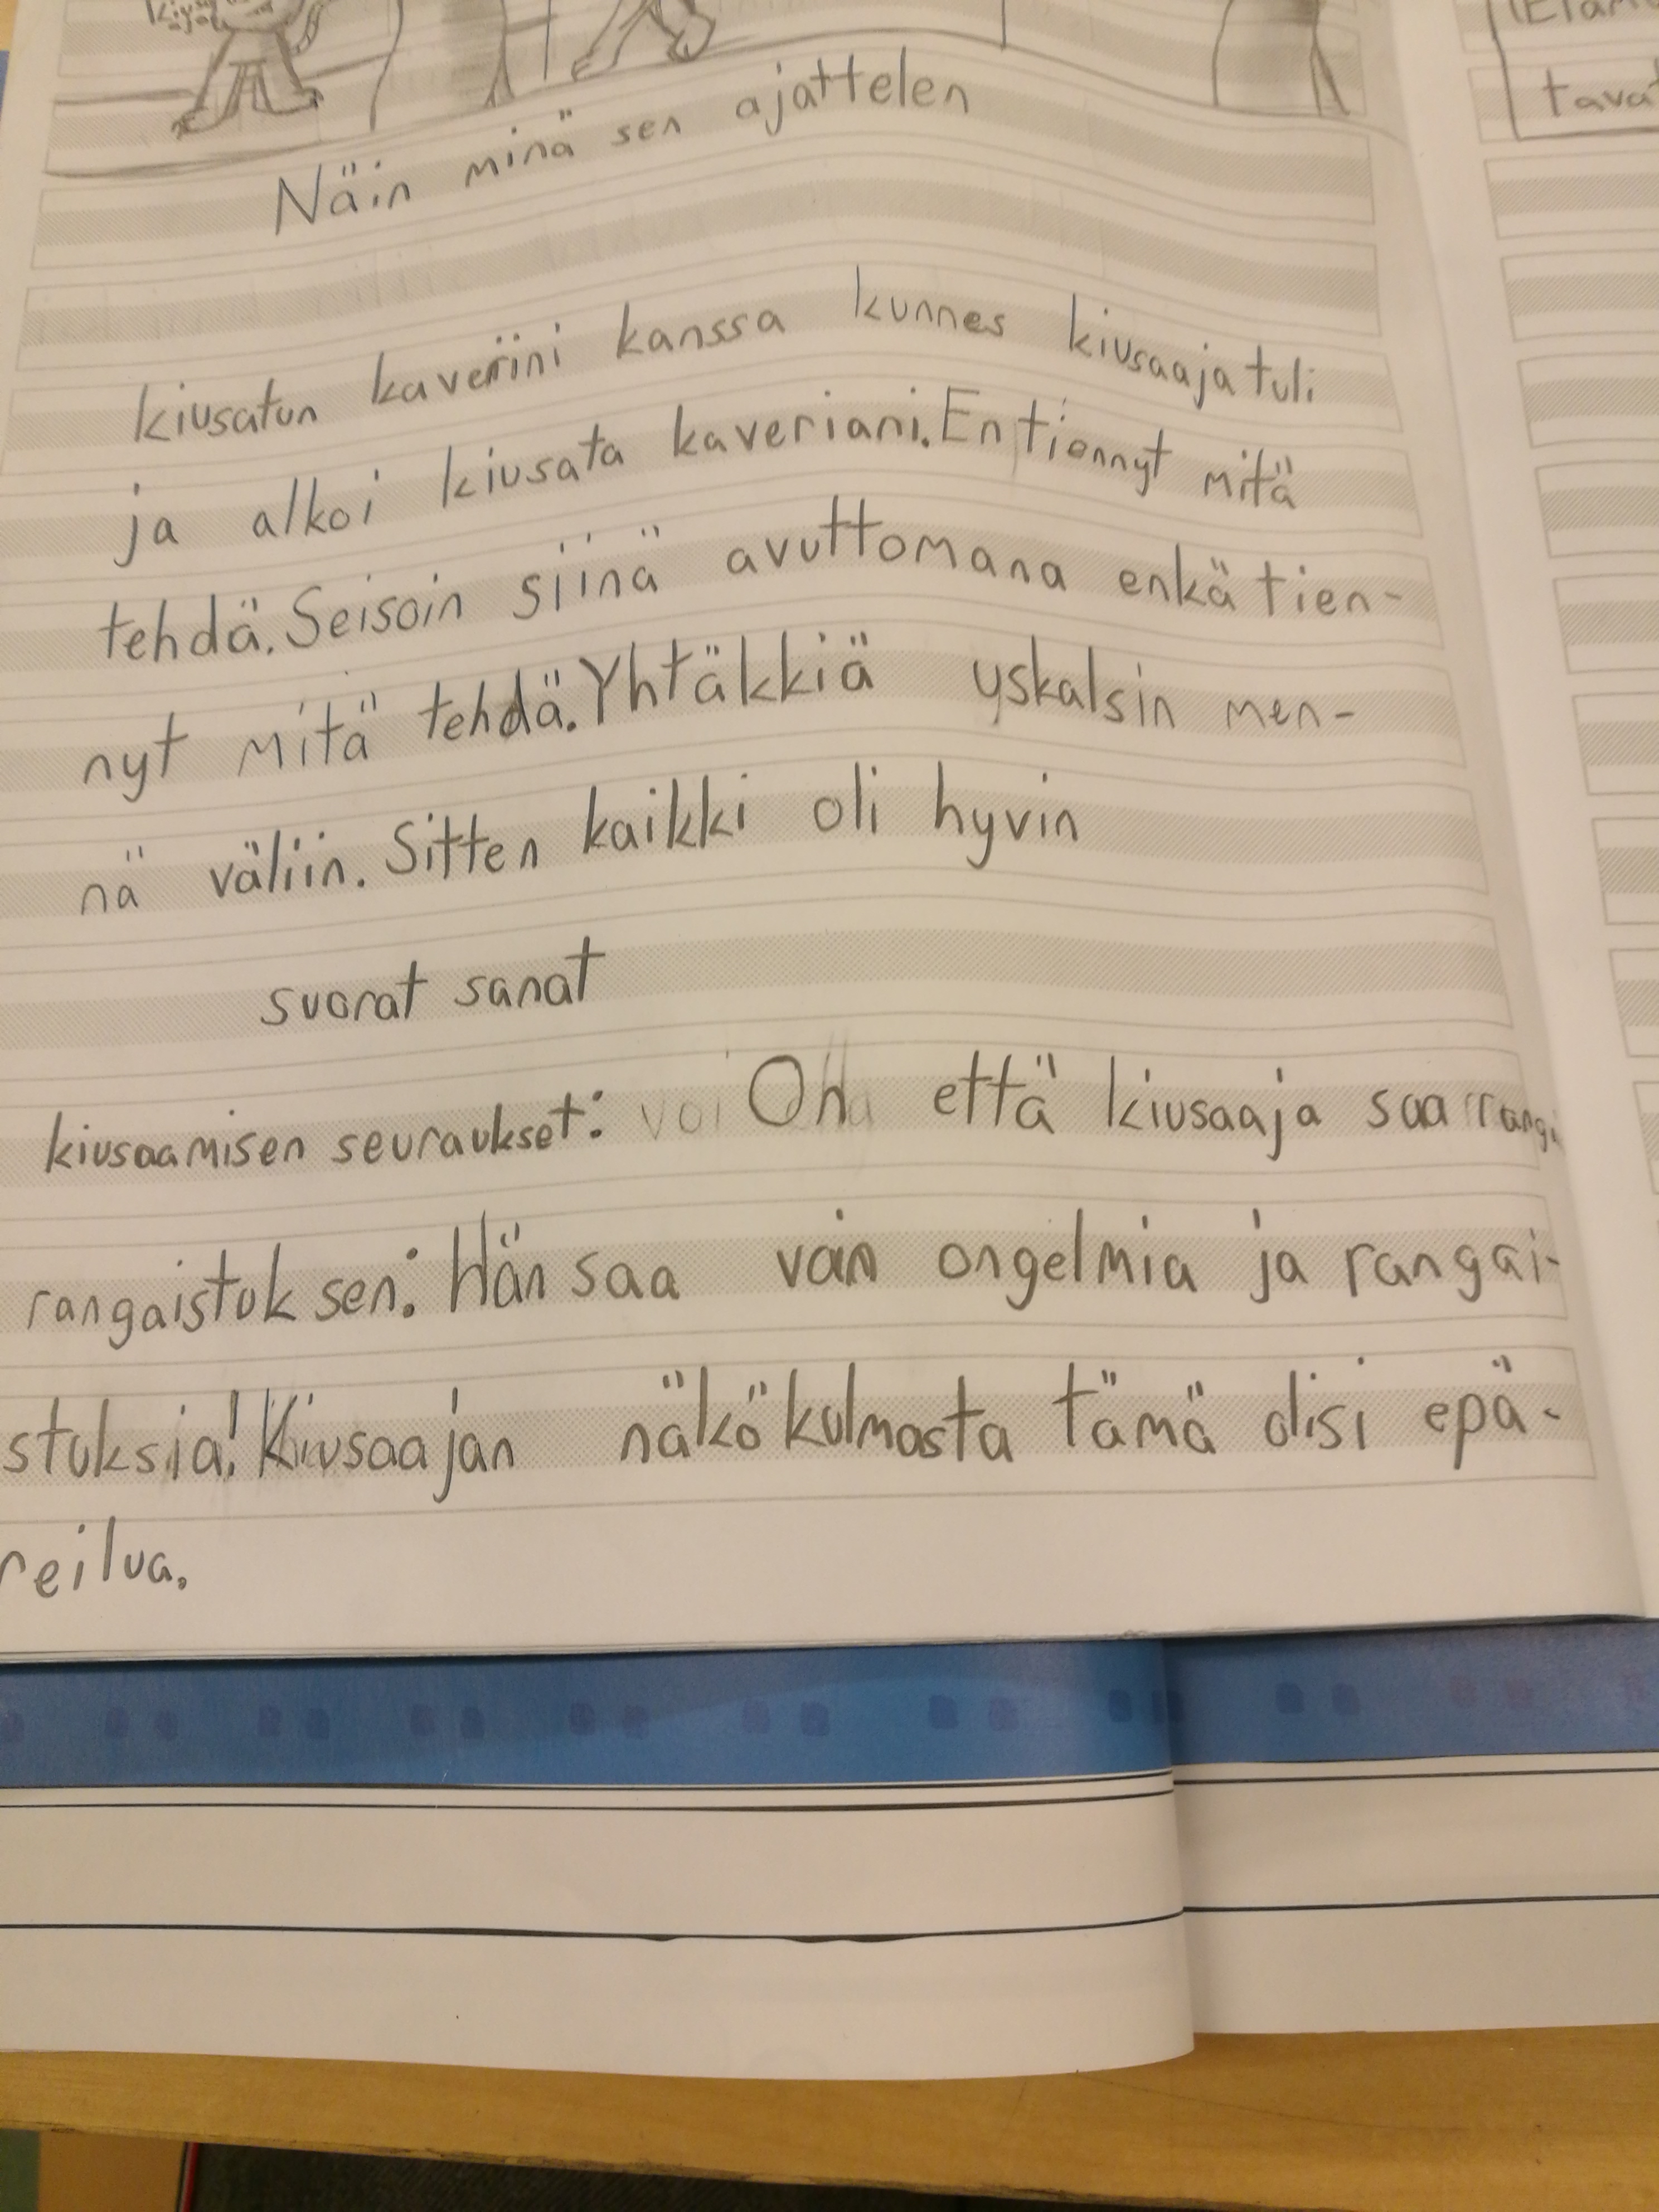 Näin minä sen ajattelen
kiusatun kaveriini kanssa kunnes kiusaaja tuli
ja alkoi kiusata kaveriani. En tiennyt mitä
tehdä. Seisoin siinä avuttomana enkä tien-
nyt mitä tehdä. Yhtäkkiä yskalsin men-
nä väliin. Sitten kaikki oli hyvin
suorat sanat
kiusaamisen seuraukset: voi On että kiusaaja saa rangi
rangaistuksen: Hän saa vain ongelmia ja rangai-
stuksia! Kiusaajan näkökulmasta tämä olisi epä-
reilua.
tavat